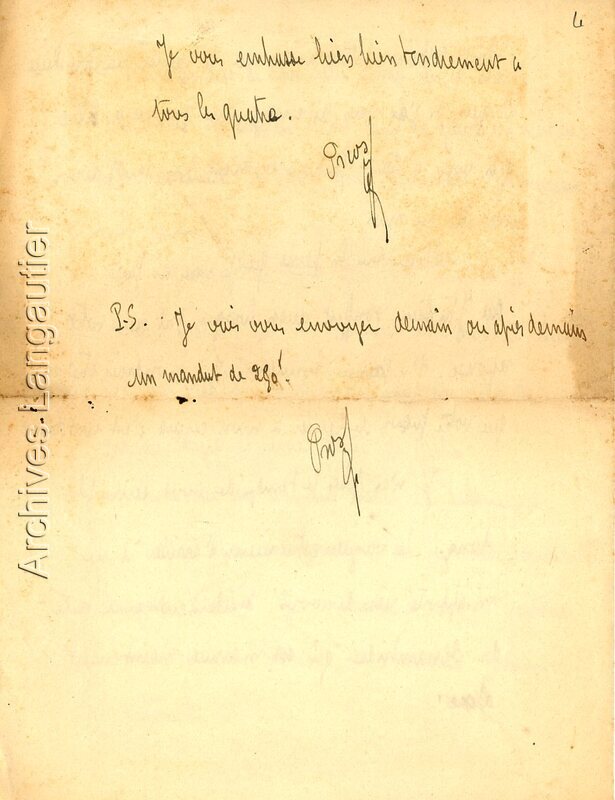 4
Je vous embrasse bien bien tendrement a
tous les quatre.
P-S. Je vais vous envoyer demain ou après demain
un mandat de 250f.
Archives Langautier